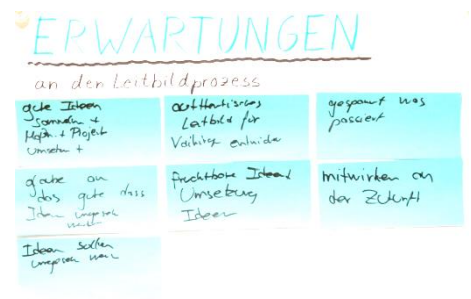 ERWARTUNGEN
an den Leitbildprozess
gute Ideen
sammeln +
+ Projekt
umsetzen +
authentisches
Leitbild für
Vaihingen entwickeln
gespannt was
passiert
glaube an
das gute dass
Ideen umgesetzt
werden
fruchtbare Ideen
Umsetzung
Ideen
mitwirken an
der Zukunft
Ideen sollen
umgesetzt werden